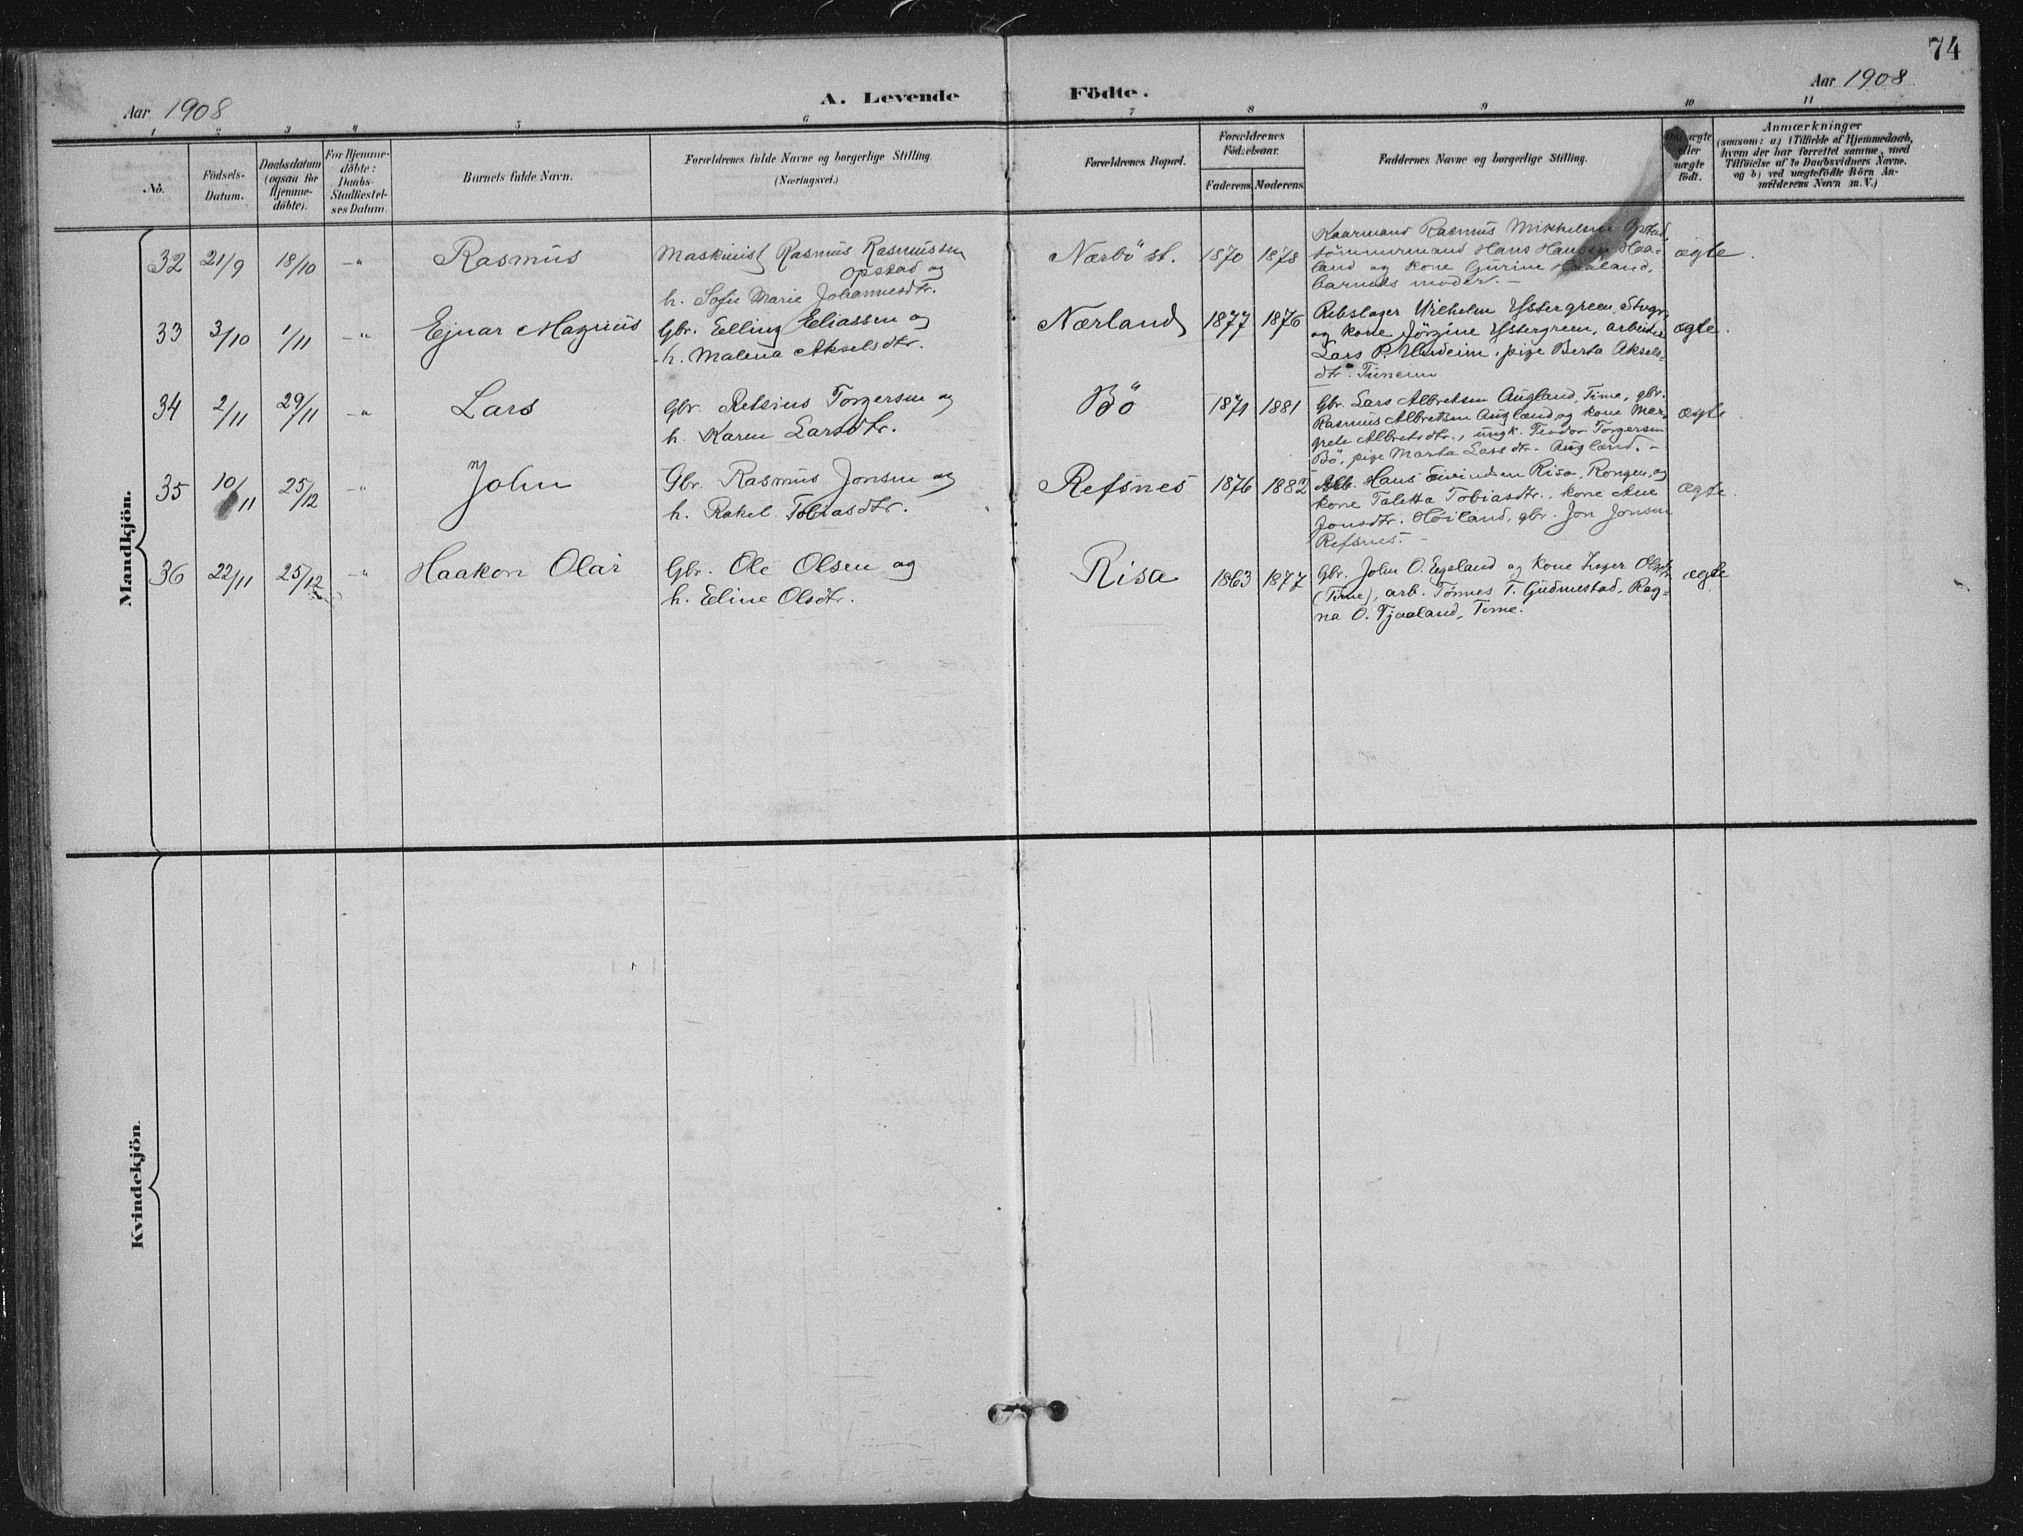 74
Aar 1908
A. Levende Födte.
Aar 1908
1 2 3 4 5 6 7 8 9 10 11
No.
Födsels-
Datum.
Daabsdatum
(ogsaa for
Hjemme-
döbte).
For Hjemme-
döbte:
Daabs-
Stadfæstel-
ses Datum.
Barnets fulde Navn.
Forældrenes fulde Navne og borgerlige Stilling.
(Næringsvei.)
Forældrenes Bopæl.
Forældrenes
Födselsaar.
Faderens Moderens
Faddernes Navne og borgerlige Stilling.
ægte
eller
uægte
födt.
Anmærkninger
(saasom: a) i Tilfælde af Hjemmedaab,
hvem der har forrettet samme, med
Tilföielse af to Daabsvidners Navne.
og b) ved uægtefödte Börn An-
melderens Navn m. V.)
Mandkjön.
32 21/9 18/10 -„- Rasmus
Maskinist Rasmus Rasmussen
Opstad og
h. Sofie Marie Johannesdtr.
Nærbö st. 1870 1878
Kaarmand Rasmus Mikkelsen Opstad,
tømmermand Hans Hansen Haa-
land og kone Gurine Haaland,
barnets moder. -
ægte.
33 3/10 1/11 -„- Ejnar Magnus
Gbr. Elling Eliassen og
h. Malena Akselsdtr.
Nærland 1877 1876
Rebslager Vilhelm Ystergreen,
og kone Jörgine Ystergreen, arbeider
Lars P. pige Berta Aksels-
dtr.
ægte.
34 2/11 29/11 -„- Lars
Gbr. Torgersen og
h. Karen Larsdtr.
Bö 1871 1881
Gbr. Lars Albretsen Augland, Time, gbr.
Rasmus Albretsen Augland og kone Mar-
grete Albretsdtr., ungk. Teodor Torgersen
Bö, pige Marta Larsdtr. Augland. -
ægte.
35 10/11 25/12 -„- John
Gbr. Rasmus Jonsen og
h. Rakel Tobiasdtr.
Refsnes 1876 1882
Gbr. Hans Eivindsen Risa, Rongen, og
kone Taletta Tobiasdtr., kone Ane
Jonsdtr. Höiland, gbr. Jon Jonsen
Refsnes. -
ægte.
36 22/11 25/12 -„- Haakon Olai
Gbr. Ole Olsen og
h. Eline Olsdtr.
Risa 1863 1877
Gbr. John O. Egeland og kone Inger Olsdtr.
(Time), arb. Tönnes T. Gudmestad, Rag-
na O. Tjaaland, Time.
ægte.
Kvindekjön.